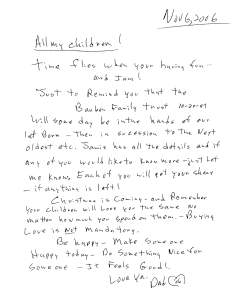 Nov 6, 2006
All my children!
Time flies when your having fun -
and I am!
Just to Remind you that the
Family trust 10-20-89
Will some day be in the hands of our
1st Born - then in sucession to the Next
oldest etc. Jamie has all the details and if
any of you would like to know more - just let
me know. Each of you will get your share
- if anything is left!
Christmas is Coming - and Remember
your children will love you the Same no
matter how much you spend on them. - Buying
Love is Not Mandatory.
Be happy - Make Someone
Happy today - Do Something Nice for
Someone - It Feels Good!
Love Ya,
Dad